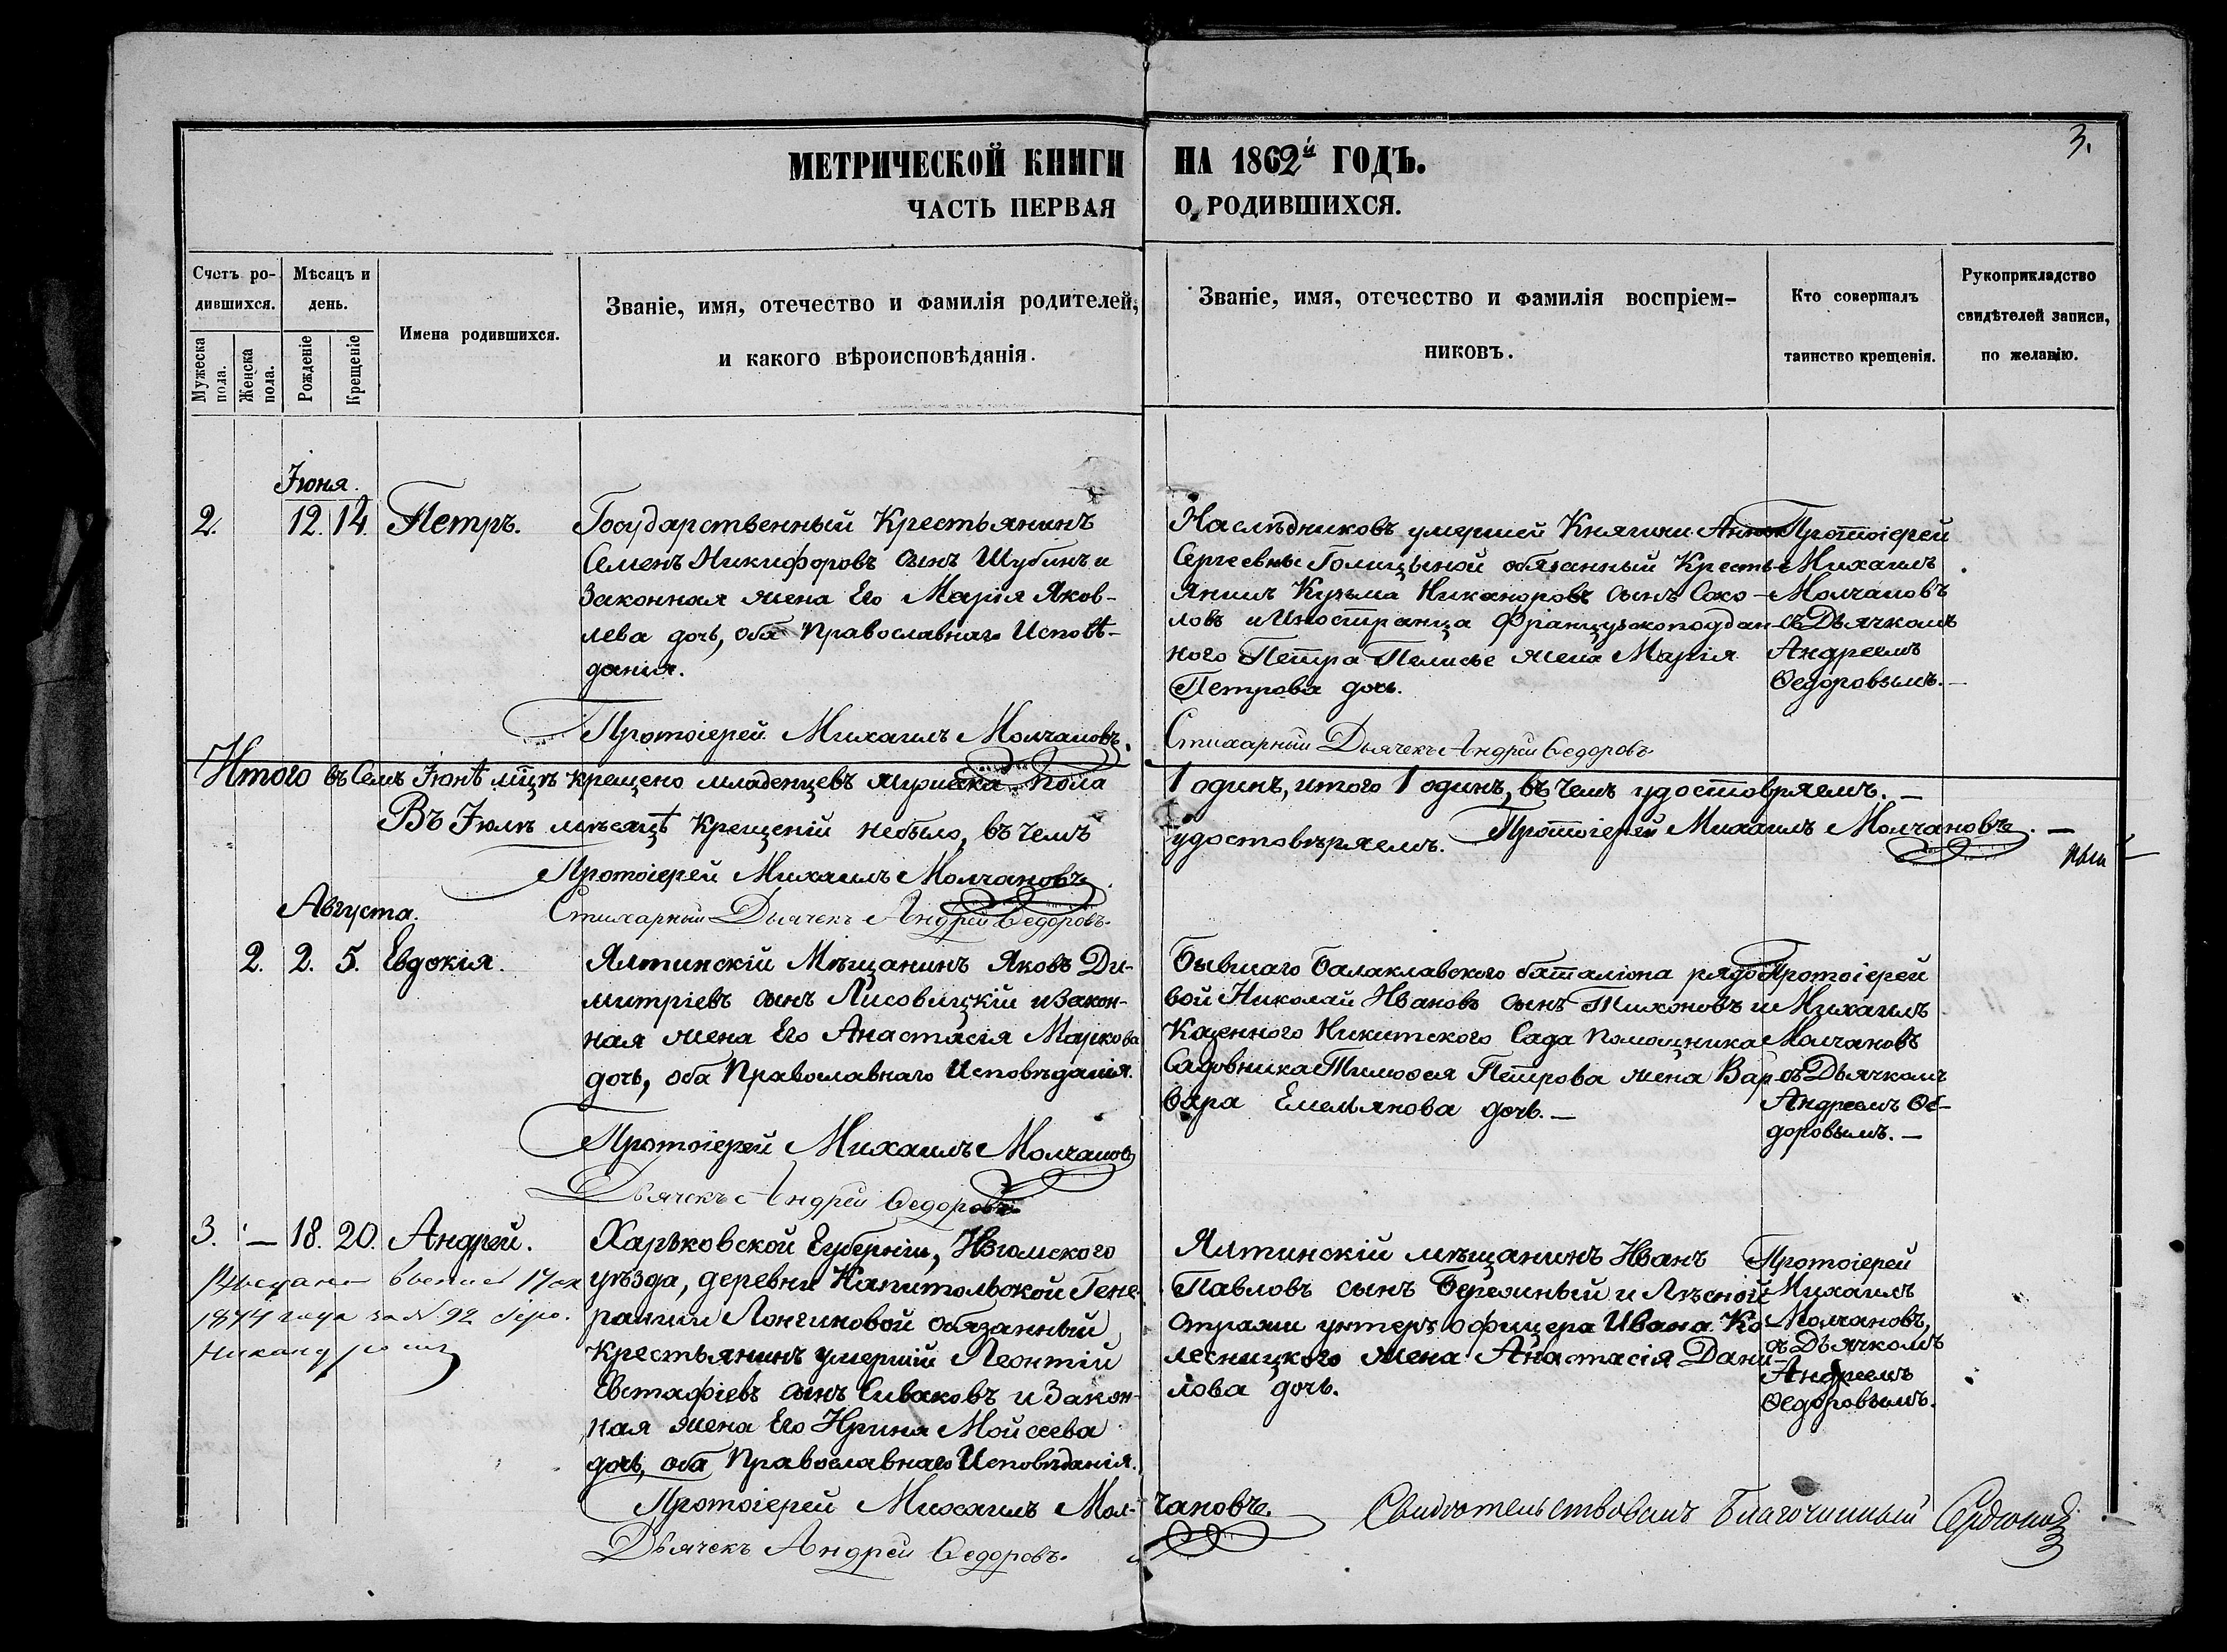 3.
МЕТРИЧЕСКОЙ КНИГИ НА 1862й ГОДЪ.
ЧАСТЬ ПЕРВАЯ О РОДИВШИХСЯ.
Счетъ ро-
дившихся.
Мужеска
пола.
Женска
пола.
Мѣсяцъ и
день.
Рожденіе
Крещеніе
Имена родившихся.
Званіе, имя, отечество и фамилія родителей,
и какого вѣроисповѣданія.
Званіе, имя, отечество и фамилія воспріем-
никовъ.
Кто совершалъ
таинство крещенія.
Рукоприкладство
свидѣтелей записи,
по желанію.
Іюня.
2. 12. 14. Петръ.
Государственный Крестьянинъ
Семенъ Никифоровъ сынъ Шубинъ и
Законная жена Его Марія Яков-
лева дочь, оба Православнаго Исповѣ-
данія.
Наслѣдниковъ умершей Княгини Анны
Сергеевны Голицыной обязанный Кресть-
янинъ Кузьма Никаноровъ сынъ Соко-
ловъ и Иностранца Французскоподдан-
ного Петра Пелисье жена Марія
Петрова дочь.
Протоіерей
Михаилъ
Молчановъ
съ Дьячкомъ
Андреемъ
Ѳедоровымъ.
Протоіерей Михаилъ Молчановъ.
Стихарный Дьячекъ Андрей Ѳедоровъ
Итого въ Семъ Іюнѣ мѣцѣ крещено младенцевъ мужеска пола 1 одинъ, итого 1 одинъ, въ чемъ удостовряемъ.
Въ Іюлѣ мѣсяцѣ Крещеній небыло, въ чемъ удостовѣряемъ. Протоіерей Михаилъ Молчановъ.
Протоіерей Михаилъ Молчановъ.
Стихарный Дьячекъ Андрей Ѳедоровъ.
Августа.
2. 2. 5. Евдокія.
Ялтинскій Мѣщанинъ Яковъ Ди-
митріевъ сынъ Лисовицкій и Закон-
ная жена Его Анастасія Маркова
дочь, оба Православнаго Исповѣданія.
Бывшаго Балаклавского баталіона рядо-
вой Николай Ивановъ сынъ Тихоновъ и
Казенного Никитского Сада Помощника
Садовника Тимоѳея Петрова жена Вар-
вара Емельянова дочь.
Протоіерей
Михаилъ
Молчановъ
съ Дьячкомъ
Андреемъ Ѳе-
доровымъ.
Протоіерей Михаилъ Молчановъ
Дьячекъ Андрей Ѳедоровъ
3. — 18. 20. Андрей.
1874 года за № 92
Харьковской Губерніи, Изюмского
уѣзда, деревни Капитольской Гене-
ральши Лонгиновой обязанный
Крестьянинъ умершій Леонтій
Евстафіевъ сынъ Сиваковъ и Закон-
ная жена Его Ирина Мойсеева
дочь, оба Православнаго Исповѣданія.
Ялтинскій мѣщанинъ Иванъ
Павловъ сынъ Бережный и Лѣсной
Стражи унтеръ офицера Ивана Ко-
лесницкого жена Анастасія Дани-
лова дочь.
Протоіерей
Михаилъ
Молчановъ,
съ Дьячкомъ
Андреемъ
Ѳедоровымъ.
Протоіерей Михаилъ Молчановъ.
Дьячекъ Андрей Ѳедоровъ.
Свидѣтельствовалъ Благочинный